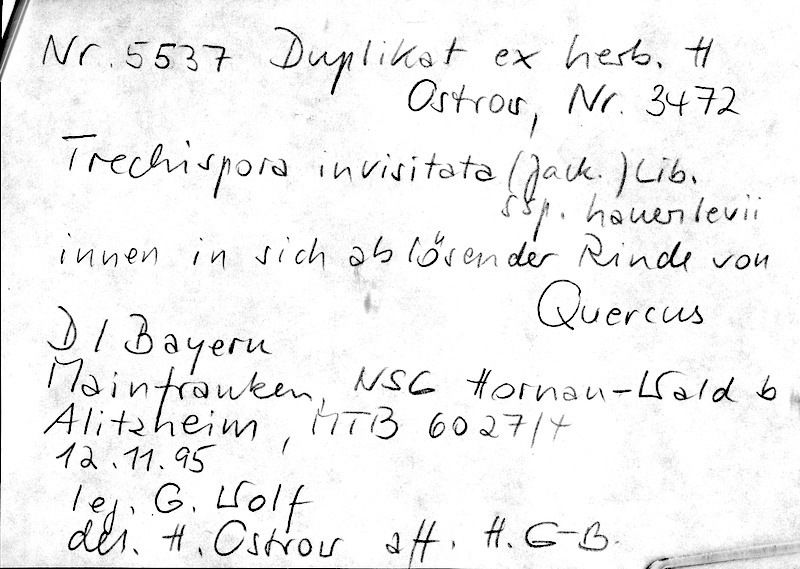 Nr. 5537 Duplikat ex herb. H
Ostrow, Nr. 3472
Trechispora invisitata (Jack.) Lib.
ssp. hauerlevii
innen in sich ablösender Rinde von
Quercus
D / Bayern
Mainfranken, NSG Hornau-Wald b
Alitzheim, MTB 6027/4
12.11.95
leg. G. Wolf
det. H. Ostrow aff. H. G-B.